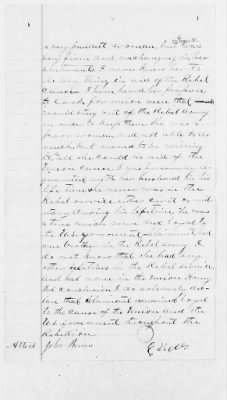 a very prudent woman, but was
very firm and unchanging in her
sentiments. I never knew her to
do any thing in aid of the Rebel
Cause. I have heard her
to for union men that
would stay out of the Rebel Army
in order to keep them. She was a
poor woman, and not able to do
much but seemed to be willing
to all she could in aid of the
Union Cause. I was
acquainted with her husband in his
life time. He never was in the
Rebel service either civil or mil-
itary during his lifetime. he was
a true union man and loyal to
the U.S. Government. Claimant had
one brother in the Rebel Army. I
do not know that she had any
other relatives in the Rebel service
and had none in the Union Army.
In conclusion I do solemnly de-
clare that Claimant remained loyal
to the cause of the Union and the
U.S. government throughout the
Rebellion.
Attest John